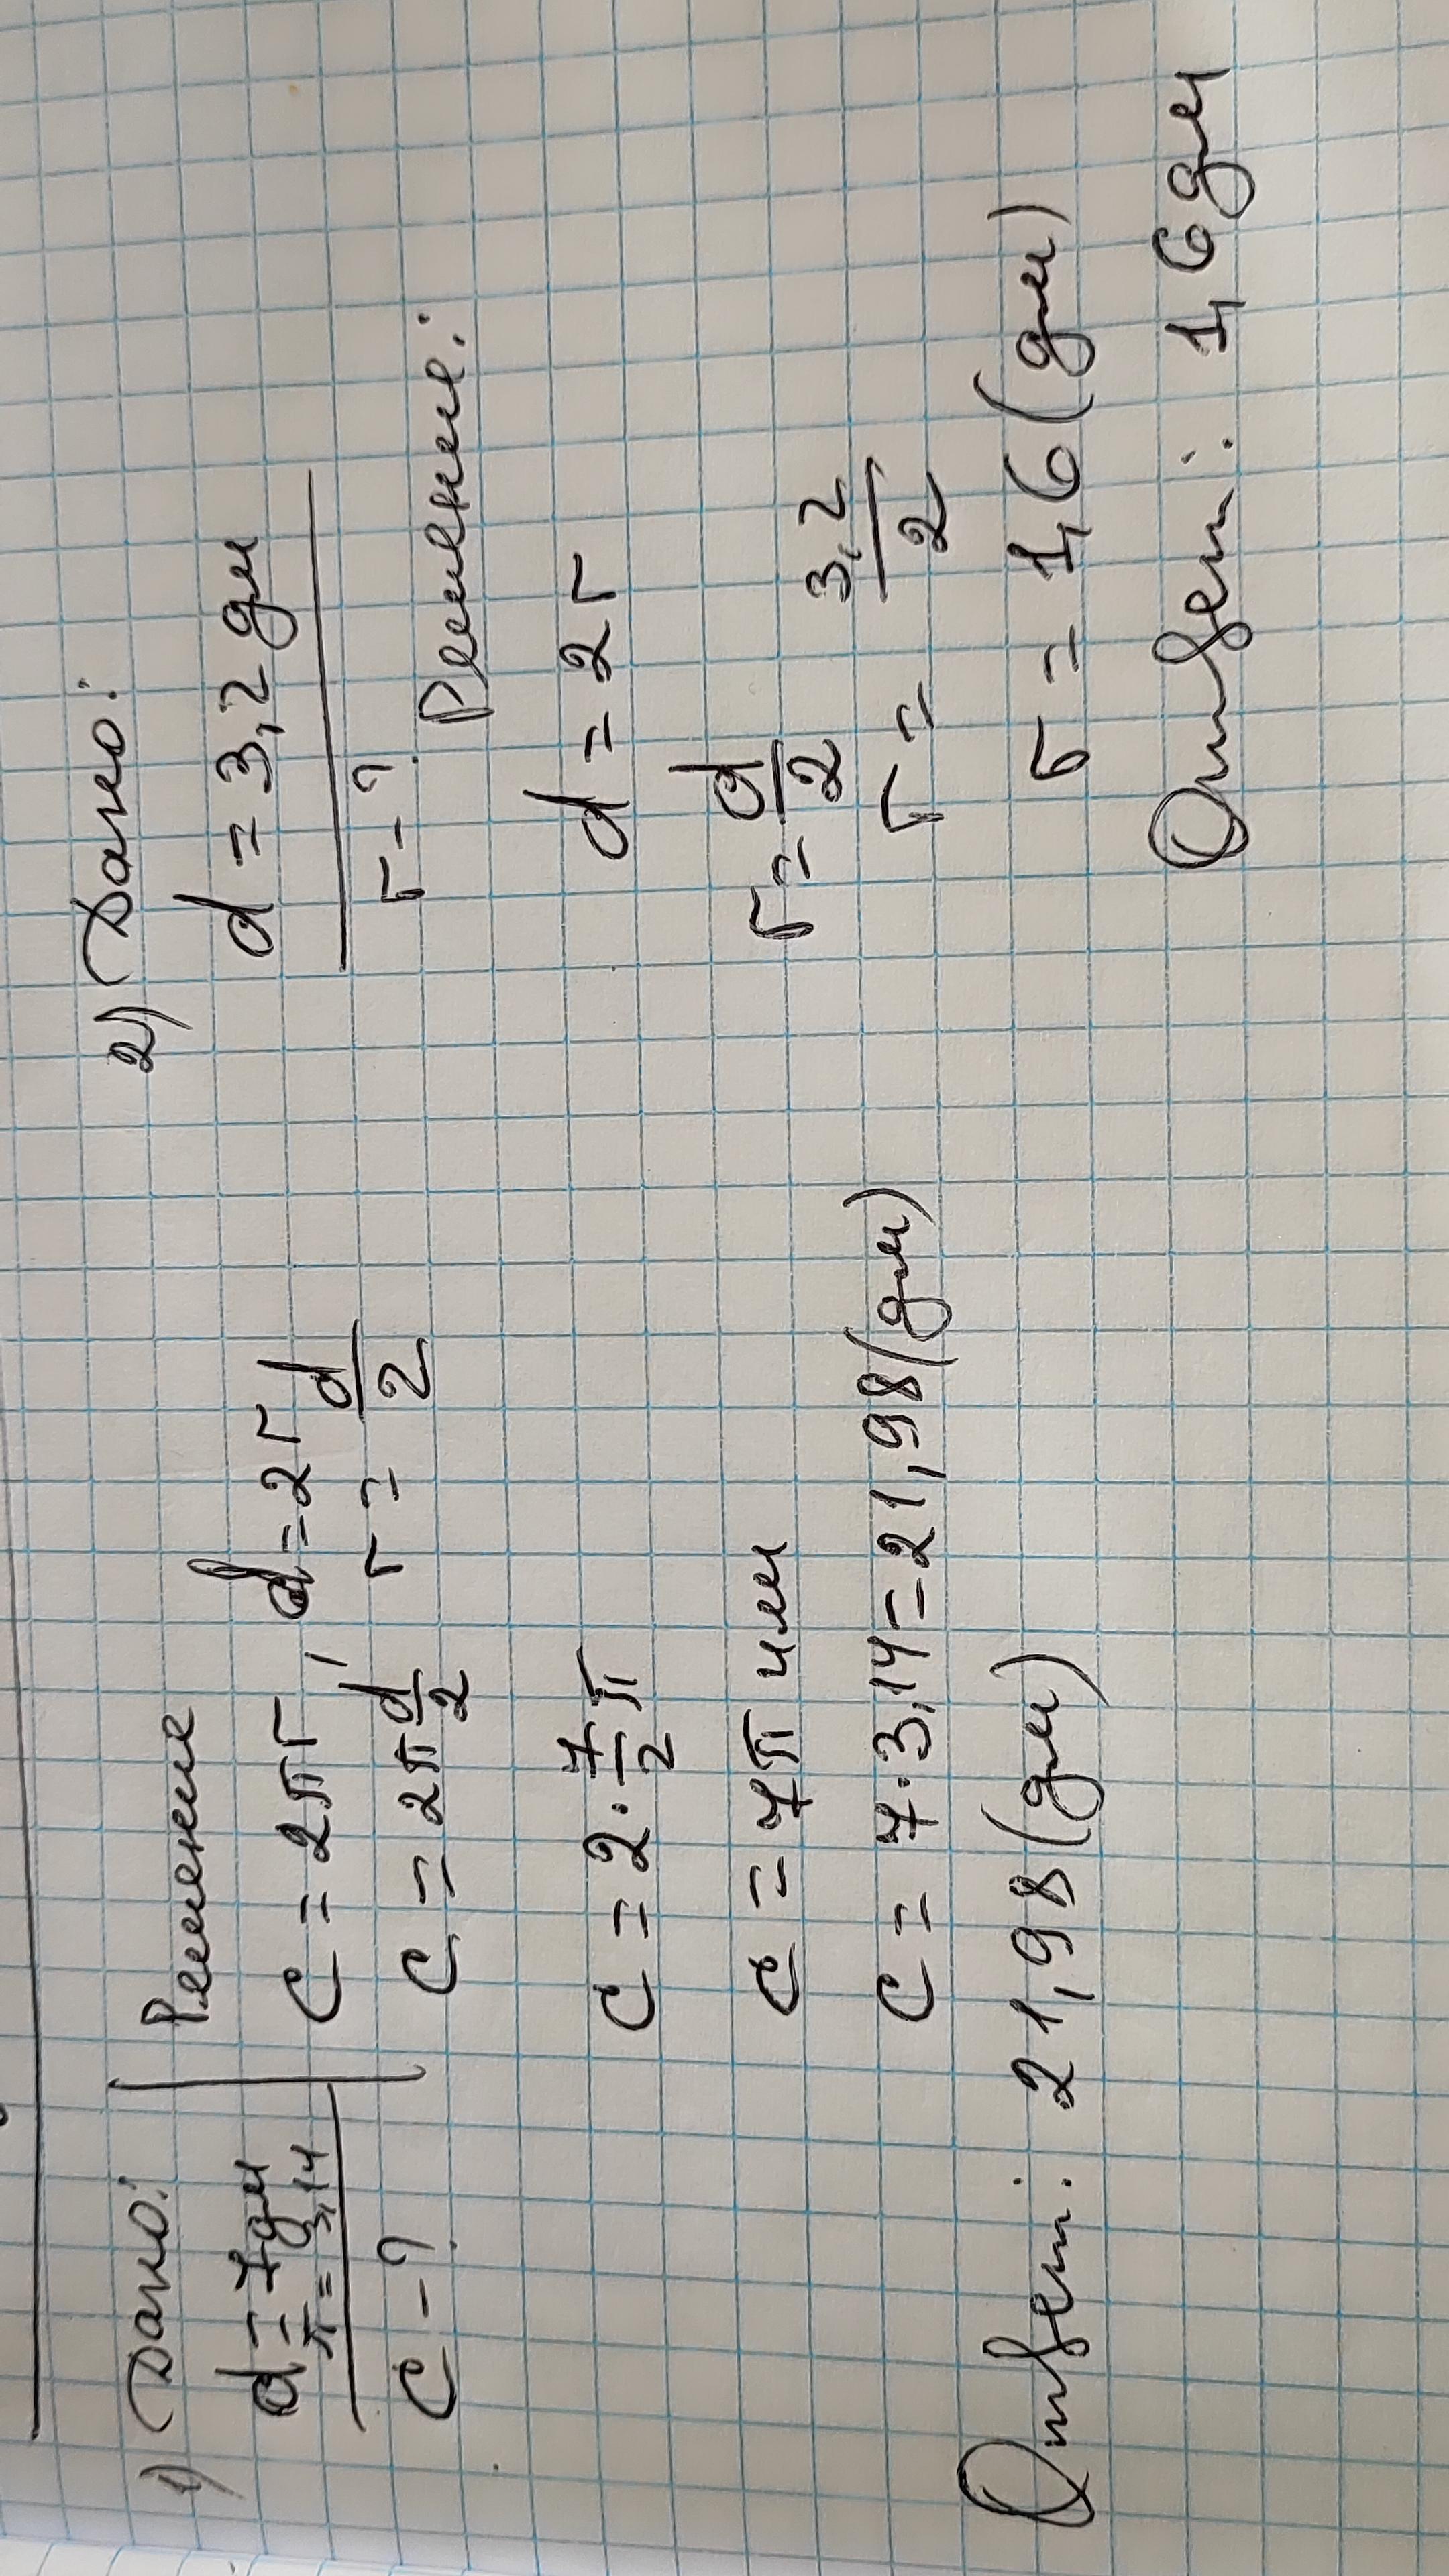 1) Дано:
d = 7дм
π = 3,14
c - ?
Решение
c = 2πr, d = 2r
c = 2π d/2 r = d/2
c = 2 · 7/2 π
c = 7π или
c = 7 · 3,14 = 21,98 (дм)
Ответ: 21,98 (дм)
2) Дано:
d = 3,2 дм
r - ?
Решение:
d = 2r
r = d/2
r = 3,2/2
r = 1,6 (дм)
Ответ: 1,6 дм